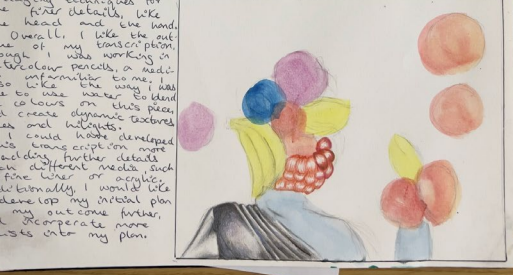 techniques for
finer details, like
e head and the hand.
Overall, I like the out-
me of my transcription,
ough I was working in
tercolour pencils, a medi-
unfarmiliar to me. I
so like the way I was
e to use water to blend
colours on this piece,
d create dynamic textures
es and hilights.
could have developed
his transcription more
including further details
different media, such
fine liner or acrylic.
ditionally, I would like
develop my initial plan
my outcome further,
incorperate more
ists into my plan.